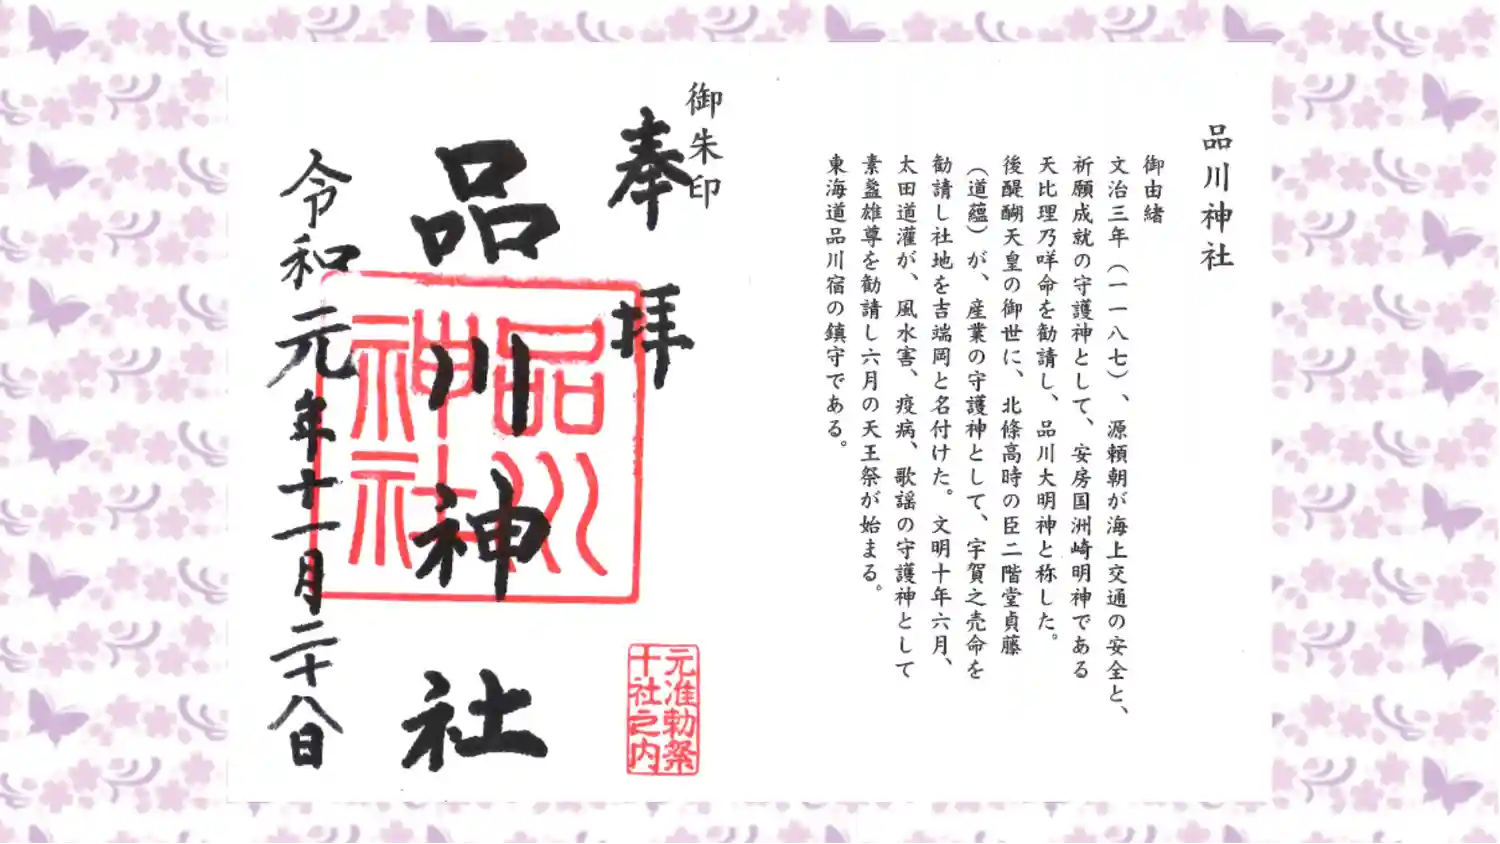 品川神社
御由緒
文治三年（一一八七）、源頼朝が海上交通の安全と、
祈願成就の守護神として、安房国洲崎明神である
天比理乃咩命を勧請し、品川大明神と称した。
後醍醐天皇の御世に、北條高時の臣二階堂貞藤
（道蘊）が、産業の守護神として、宇賀之売命を
勧請し社地を吉端岡と名付けた。文明十年六月、
太田道灌が、風水害、疫病、歌謡の守護神として
素盞雄尊を勧請し六月の天王祭が始まる。
東海道品川宿の鎮守である。
御朱印
奉拝
元准勅祭
十社之内
品川神社
品川
神社
令和元年十一月二十八日